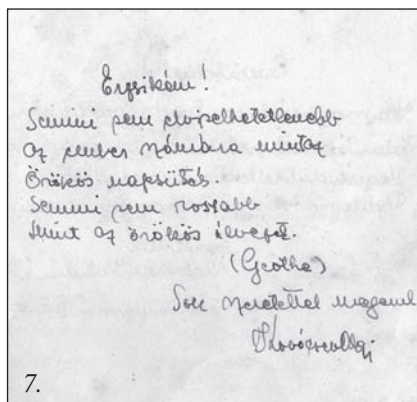 Erzsikém!
Semmi sem elviselhetetlenebb
az ember számára mint az
Örökös napsütés.
Semmi sem rosszabb
Mint az örökös élvezet.
(Geothe)
Sok szeretettel magamról
7.